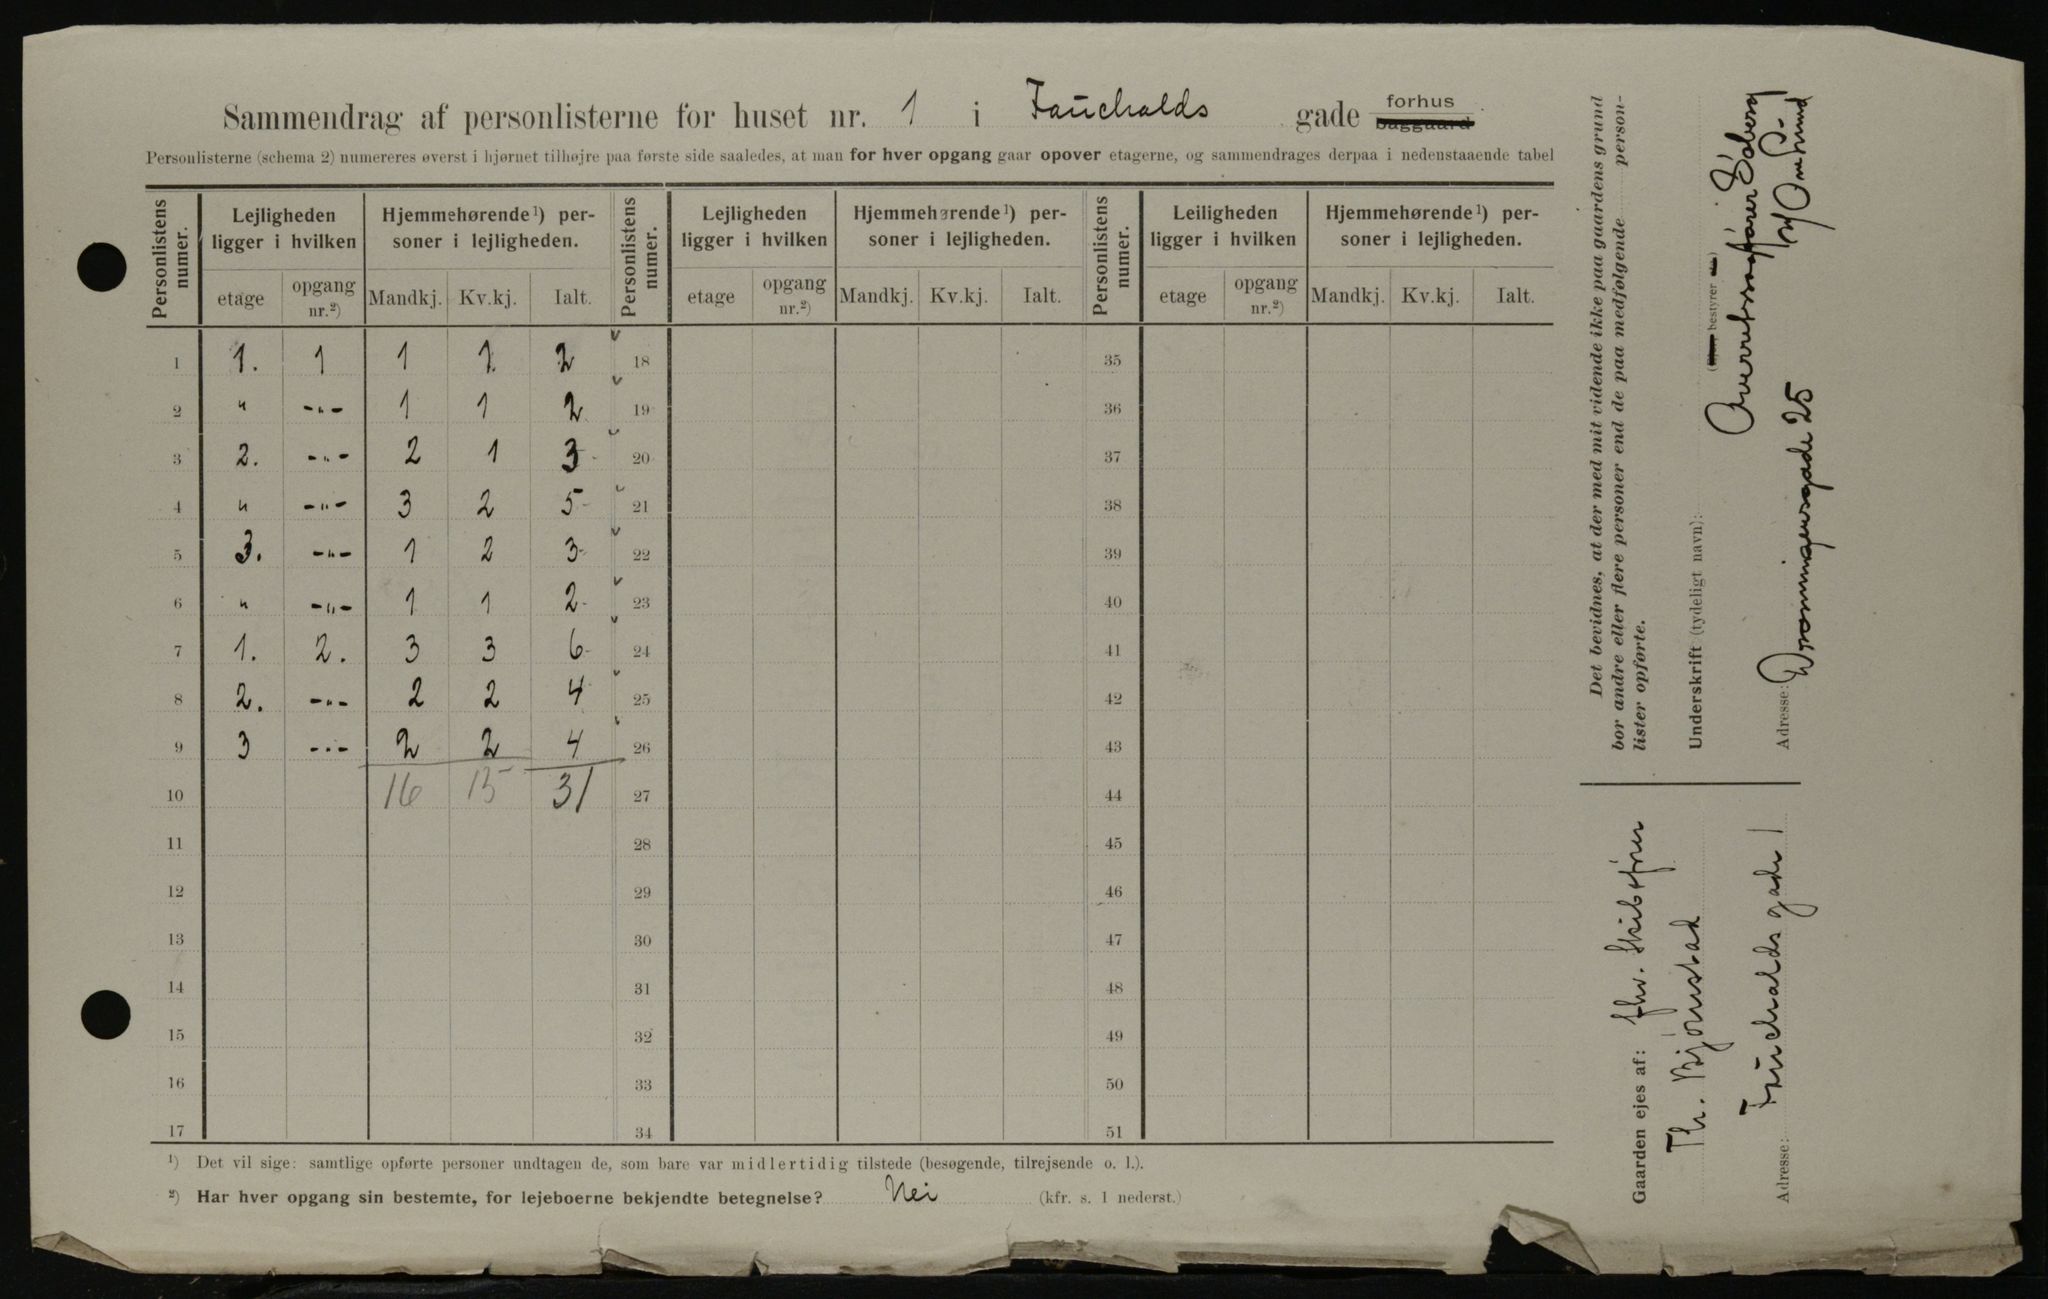 Sammendrag af personlisterne for huset nr. 1 i Fauchalds gade forhus baggaard
Personlisterne (schema 2) numereres øverst i hjørnet tilhøjre paa første side saaledes, at man for hver opgang gaar opover etagerne, og sammendrages derpaa i nedenstaaende tabel
Personlistens numer. Lejligheden ligger i hvilken Hjemmehørende¹) personer i lejligheden. Personlistens numer. Lejligheden ligger i hvilken Hjemmehørende¹) personer i lejligheden. Personlistens numer. Leiligheden ligger i hvilken Hjemmehørende¹) personer i lejligheden.
etage opgang nr.²) Mandkj. Kv.kj. Ialt. etage opgang nr.²) Mandkj. Kv.kj. Ialt. etage opgang nr.²) Mandkj. Kv.kj. Ialt.
1 1. 1 1 1 2 18 35
2 " -"- 1 1 2 19 36
3 2. -"- 2 1 3 20 37
4 " -"- 3 2 5 21 38
5 3. -"- 1 2 3 22 39
6 " -"- 1 1 2 23 40
7 1. 2. 3 3 6 24 41
8 2. -"- 2 2 4 25 42
9 3 -"- 2 2 4 26 43
10 16 15 31 27 44
11 28 45
12 29 46
13 30 47
14 31 48
15 32 49
16 33 50
17 34 51
¹) Det vil sige: samtlige opførte personer undtagen de, som bare var midlertidig tilstede (besøgende, tilrejsende o. l.).
²) Har hver opgang sin bestemte, for lejeboerne bekjendte betegnelse? Nei (kfr. s. 1 nederst.)
Det bevidnes, at der med mit vidende ikke paa gaardens grund
bor andre eller flere personer end de paa medfølgende person-
lister opførte.
Underskrift (tydeligt navn):
(bestyrer
Adresse: Dronningensgade 25
Gaarden ejes af: fhv. Skibsfører
Th. Bjørnstad
Adresse: Fauchalds gade 1